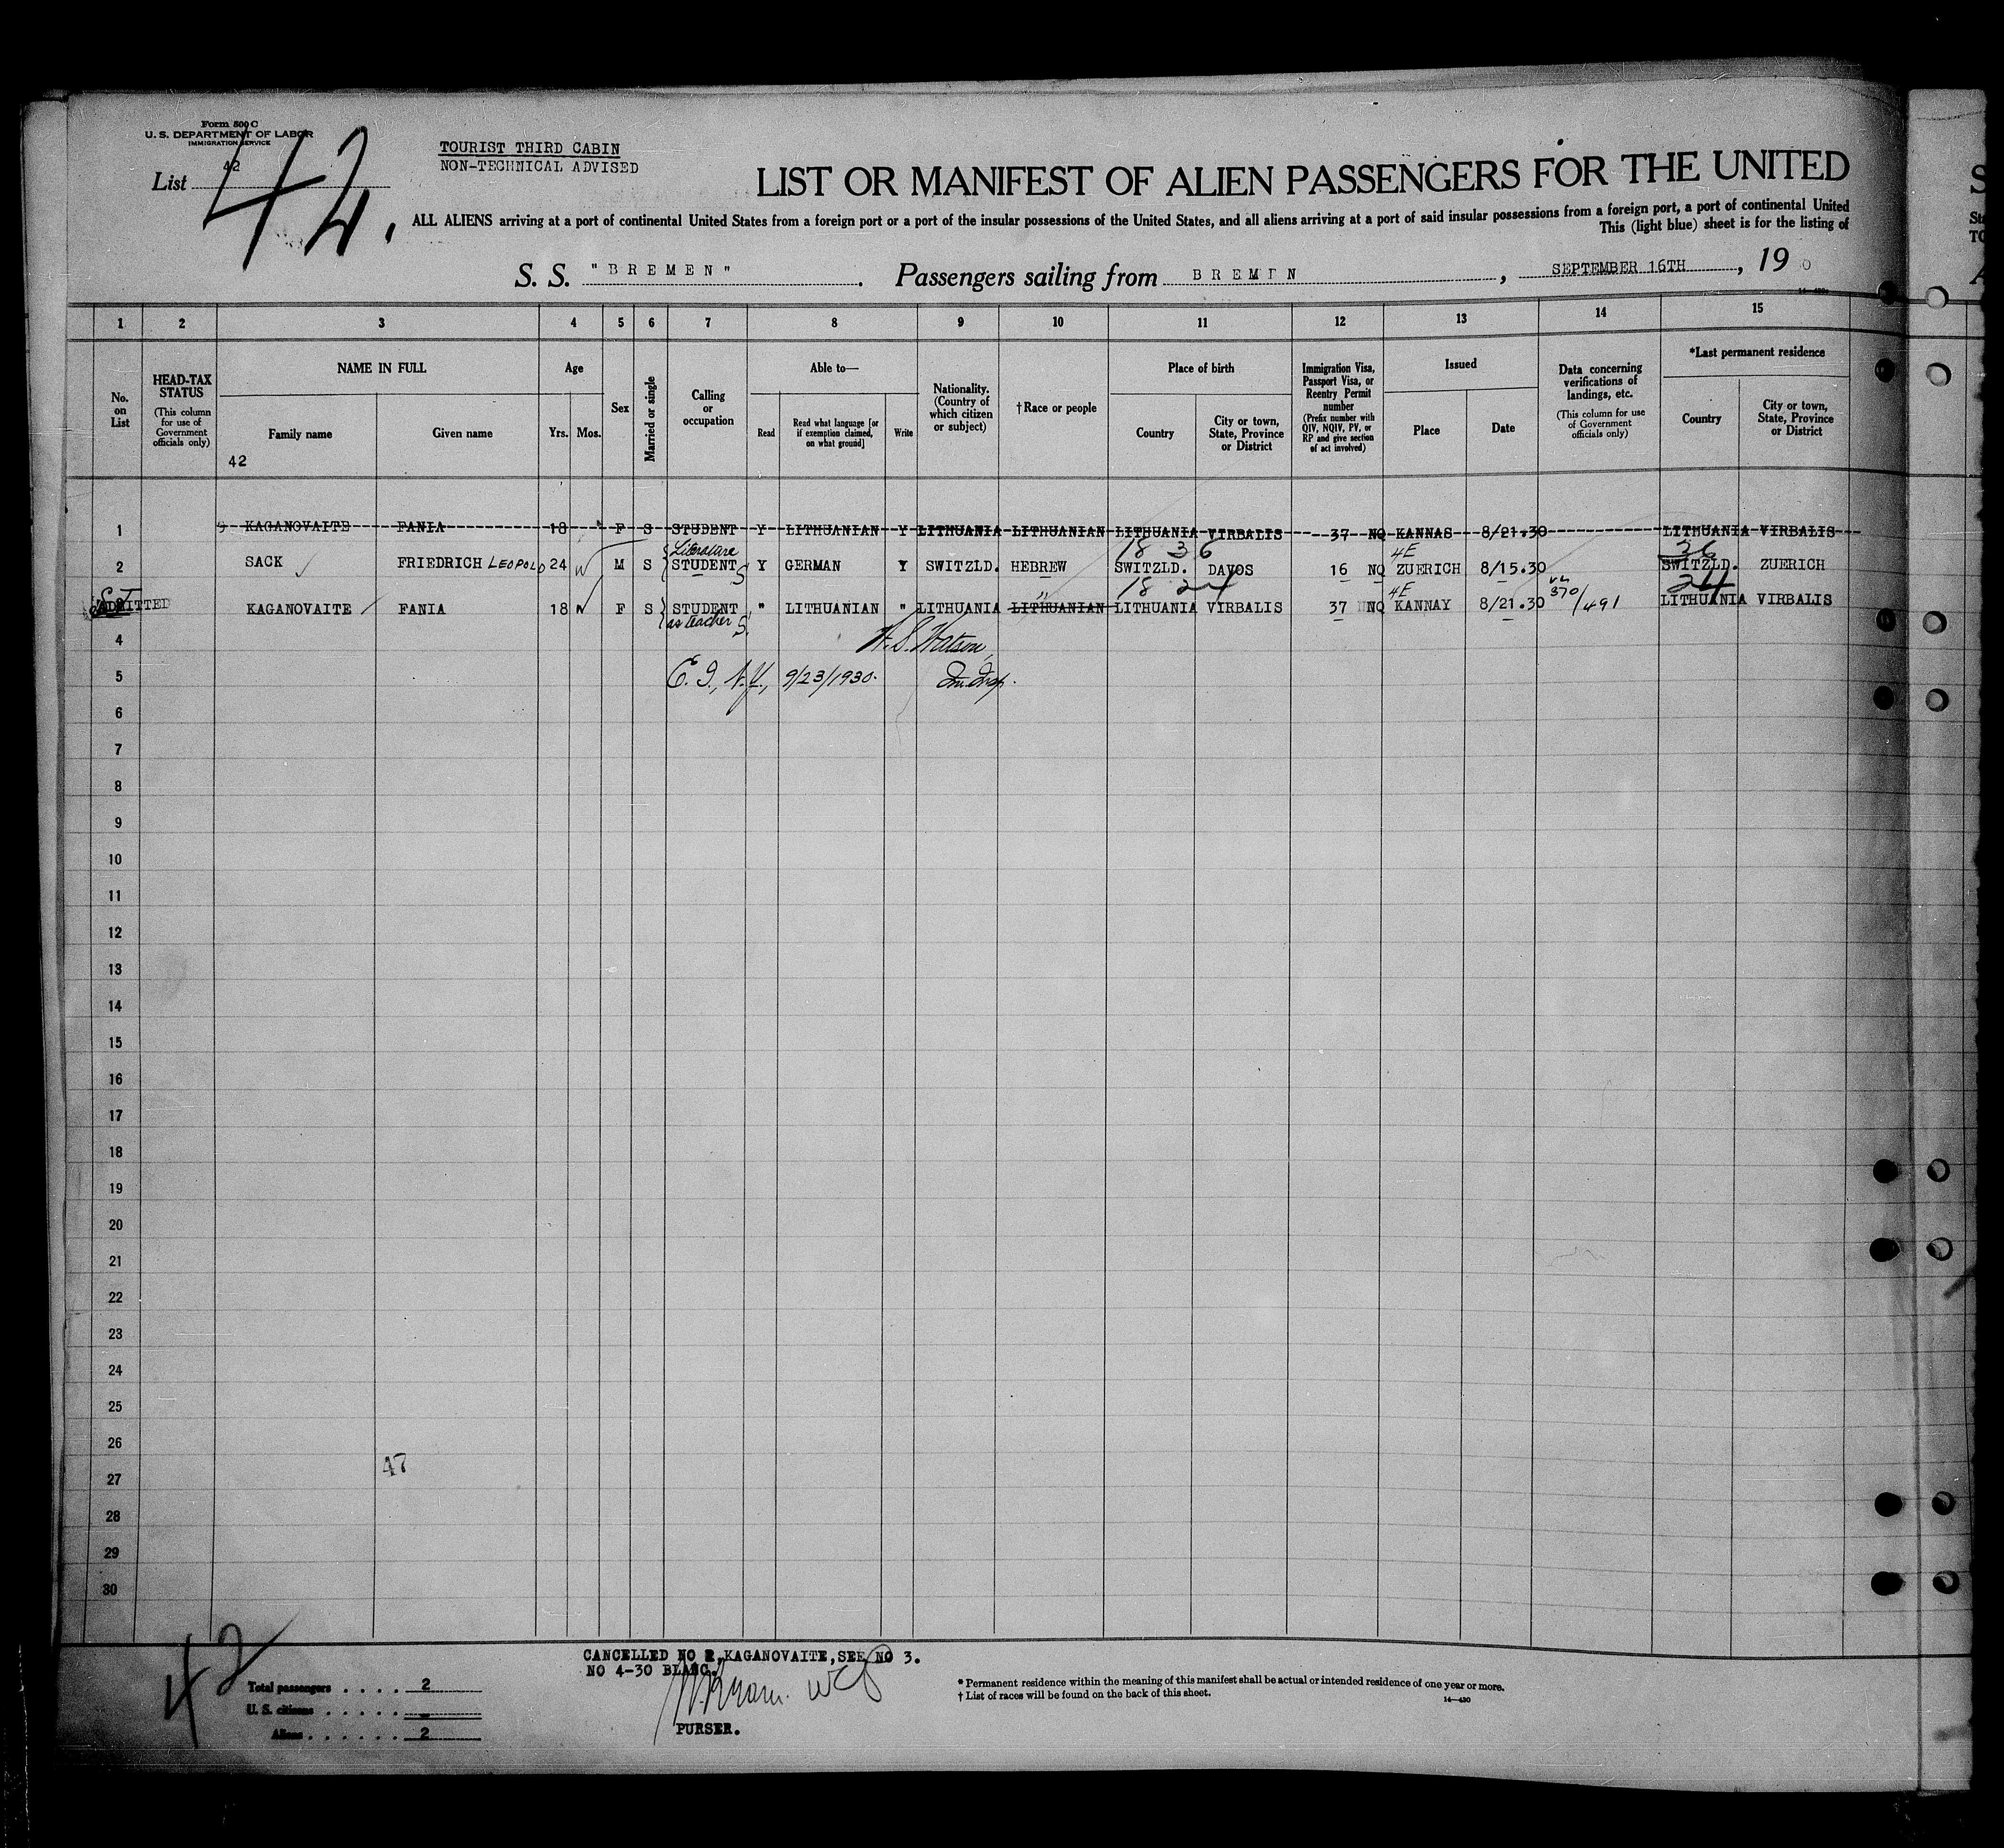 Form 500 C
U. S. DEPARTMENT OF LABOR
IMMIGRATION SERVICE
List 42
42.
TOURIST THIRD CABIN
NON-TECHNICAL ADVISED
LIST OR MANIFEST OF ALIEN PASSENGERS FOR THE UNITED
ALL ALIENS arriving at a port of continental United States from a foreign port or a port of the insular possessions of the United States, and all aliens arriving at a port of said insular possessions from a foreign port, a port of continental United
This (light blue) sheet is for the listing of
S. S. "BREMEN". Passengers sailing from BREMEN, SEPTEMBER 16TH, 19 0
1 2 3 4 5 6 7 8 9 10 11 12 13 14 15
No. on List
HEAD-TAX STATUS (This column for use of Government officials only)
NAME IN FULL
Family name
Given name
42
Age
Yrs. Mos.
Sex
Married or single
Calling or occupation
Able to—
Read
Read what language [or if exemption claimed, on what ground]
Write
Nationality. (Country of which citizen or subject)
†Race or people
Place of birth
Country
City or town, State, Province or District
Immigration Visa, Passport Visa, or Reentry Permit number (Prefix number with QIV, NQIV, PV, or RP and give section of act involved)
Issued
Place
Date
Data concerning verifications of landings, etc. (This column for use of Government officials only)
*Last permanent residence
Country
City or town, State, Province or District
1 KAGANOVAITE FANIA 18 F S STUDENT Y LITHUANIAN Y LITHUANIA LITHUANIAN LITHUANIA VIRBALIS 37 NQ KANNAS 8/21.30 LITHUANIA VIRBALIS
Literature 18 36 4E 36
2 SACK FRIEDRICH LEOPOLD 24 M S STUDENT S Y GERMAN Y SWITZLD. HEBREW SWITZLD. DAVOS 16 NQ ZUERICH 8/15.30 SWITZLD. ZUERICH
18 24 4E 370/491 24
ADMITTED KAGANOVAITE FANIA 18 F S STUDENT " LITHUANIAN " LITHUANIA LITHUANIAN LITHUANIA VIRBALIS 37 NQ KANNAY 8/21.30 LITHUANIA VIRBALIS
as teacher S.
4 W. S. Watson,
5 E. I., N.Y., 9/23/1930. Im. Insp.
6
7
8
9
10
11
12
13
14
15
16
17
18
19
20
21
22
23
24
25
26
47
27
28
29
30
42
CANCELLED NO 2, KAGANOVAITE, SEE NO 3.
NO 4-30 BLANC.
Total passengers . . . . 2
U. S. citizens . . . . . –
Aliens . . . . . . 2
PURSER.
* Permanent residence within the meaning of this manifest shall be actual or intended residence of one year or more.
† List of races will be found on the back of this sheet.
14—430